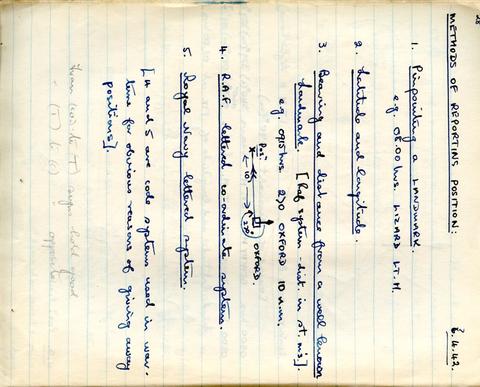 28
METHODS OF REPORTING POSITION:
6.4.42.
1. Pinpointing a LANDMARK.
e.g. 05.00 hrs. LIZARD LT. H.
2. Latitude and longitude.
3. Bearing and distance from a well known
landmark. [Raf system - dist in st. m's].
e.g. 0915 hrs. 270 OXFORD 10 n.m.
Pos?
10
270
OXFORD.
4. R.A.F. lettered co-ordinate system.
5. Royal Navy lettered system.
[4 and 5 are code systems used in war-
time for obvious reasons of giving away
positions].
opposite